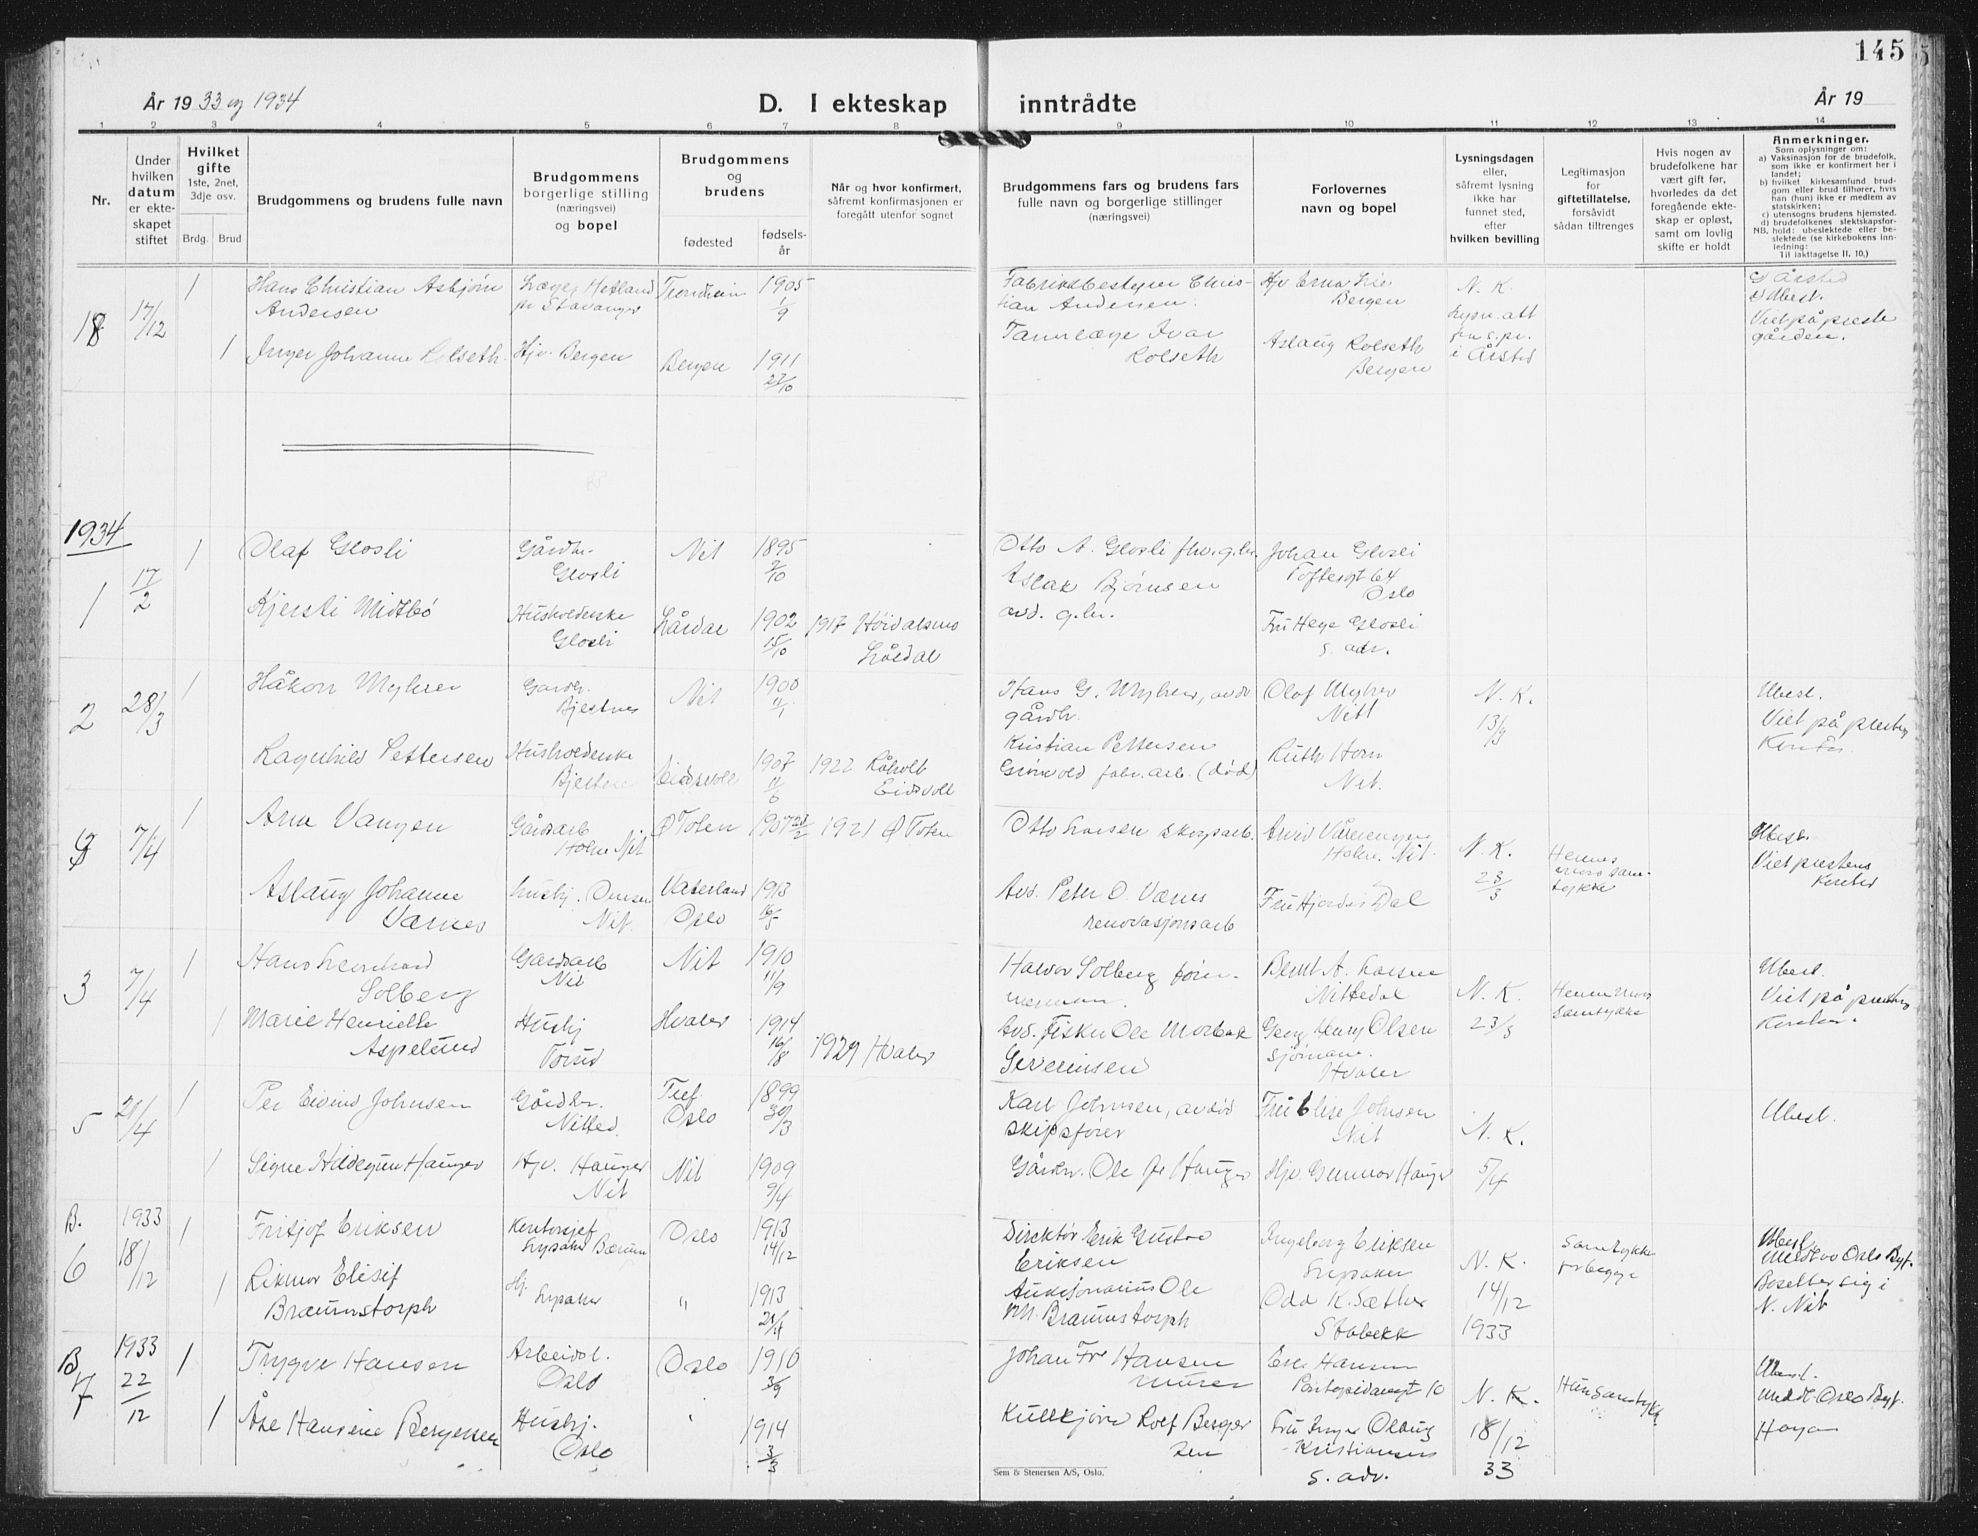 145
År 1933 og 1934
D. I ekteskap inntrådte
År 19
1 2 3 4 5 6 7 8 9 10 11 12 13 14
Nr.
Under hvilken datum er ekteskapet stiftet
Hvilket gifte
1ste, 2net, 3dje osv.
Brdg. Brud
Brudgommens og brudens fulle navn
Brudgommens borgerlige stilling (næringsvei) og bopel
Brudgommens og brudens
fødested
fødselsår
Når og hvor konfirmert, såfremt konfirmasjonen er foregått utenfor sognet
Brudgommens fars og brudens fars fulle navn og borgerlige stillinger (næringsvei)
Forlovernes navn og bopel
Lysningsdagen eller, såfremt lysning ikke har funnet sted, efter hvilken bevilling
Legitimasjon for giftetillatelse, forsåvidt sådan tiltrenges
Hvis nogen av brudefolkene har vært gift før, hvorledes da det foregående ekteskap er opløst, samt om lovlig skifte er holdt
Anmerkninger.
Som oplysninger om:
a) Vaksinasjon for de brudefolk, som ikke er konfirmert her i landet;
b) hvilket kirkesamfund brudgom eller brud tilhører, hvis han (hun) ikke er medlem av statskirken;
c) utensogns brudens hjemsted.
d) brudefolkenes slektskapsforhold: ubeslektede eller beslektede (se kirkebokens innledning:
NB.
Til iakttagelse II, 10.)
18 17/12 1 Hans Christian Asbjørn Andersen
Hetland pr Stavanger
Trondheim 1905 1/9
Fabrikkbestyrer Christian Andersen.
Hjv Erna Lie Bergen
N. K.
Lysn. att
i Årstad
Årstad
Ubesl.
Viet på prestegården.
1 Inger Johanne Rolseth
Hjv. Bergen
Bergen 1911 27/10
Tannlæge Ivar Rolseth
Aslaug Rolseth Bergen
1934
1 17/2 1 Olaf Glosli
Gårdbr. Glosli
Nit 1895 2/10
Otto A. Glosli fhv. g.br.
Johan Glosli Toftesgt 64 Oslo
Kjersti Midtbö
Husholderske Glosli
Lårdal 1902 15/10
1917 Høidalsmo Lårdal
Aslak Bjørnsen avd. g.br.
Fru Hege Glosli s. adr.
2 28/3 1 Håkon Myhrer
Gårdbr. Bjertnes
Nit 1900 4/1
Hans G. Myhrer, avdø gårdbr.
Olaf Myhrer Nitt
N. K. 13/3
Ubesl.
Viet på prestens
Ragnhild Pettersen
Husholderske
Eidsvoll 1907 11/6
1922 Råholt Eidsvoll
Kristian Pettersen Grönvold fabr. arb. (död)
Ruth Horn Nit.
7/4 1 Arne Vangen
Gårdsarb Holm Nit
Ø Toten 1907
1921 Ø Toten
Otto Larsen skogsarb.
Arvid Vålerengen Holm. Nit.
N. K. 23/3
Hennes mors samtykke
Ubesl.
Viet prestens kontor
Aslaug Johanne Værnes
Nit.
Vaterland Oslo 1913 16/5
Avd. Peter O. Værnes renovasjonsarb
Fru Hjørdis Dal
3 7/4 1 Hans Leonhard Solberg
Gårdsarb Nit
Nit 1910 11/9
Halvor Solberg tömmermann.
Bernt A. Larsen Nittedal
N. K. 23/3
Hennes mors samtykke
Ubesl.
Viet på prestens kontor.
1 Marie Henriette Aspelund
Hushj
Hvaler 1914 16/8
1929 Hvaler
Avd. Fisker Ole Morbak Severinsen
Georg Henry Olsen sjömann. Hvaler
5 21/4 1 Per Eivind Johnsen
Gårdbr. Nitted.
Oslo 1899 30/3
Karl Johnsen, avdöd skipsförer
Fru Elise Johnsen Nit
N. K. 5/4
Ubesl.
1 Signe Hildegun Hauger
Hjv. Hauger Nit
Nit 1909 9/4
Gårdbr. Ole Hauger
Hjv. Gunnvor Hauger
B. 6 1933 18/12 1 Fritjof Eriksen
Kontorsjef Lysaker Bærum
Oslo 1913 14/12
Direktör Erik Gustav Eriksen
Ingeborg Eriksen Lysaker
N. K. 14/12 1933
Samtykke
Ubesl.
Meddt. av Oslo Byf.
Bosetter sig i N. Nit
1 Rikmor Elisif Braunstorph
Hj. Lysaker
" 1913
Auksjonarius Ole M. Braunstorph
Odd K. Sæther Stabekk
B. 7 1933 22/12 1 Trygve Hansen
Arbeidsl. Oslo
Oslo 1910 3/9
Johan Fr. Hansen murer
Hansen Pontoppidansgt 10
N. K. 18/12 33
Hun samtykke
Ubesl.
Meddt. Oslo Byf.
1 Åse Hansine Bergersen
Hushj. Oslo
" 1914 3/3
Kullkjörer Rolf Bergersen
Fru Inger Olaug Kristiansen s. adr.
Sem & Stenersen A/S, Oslo.